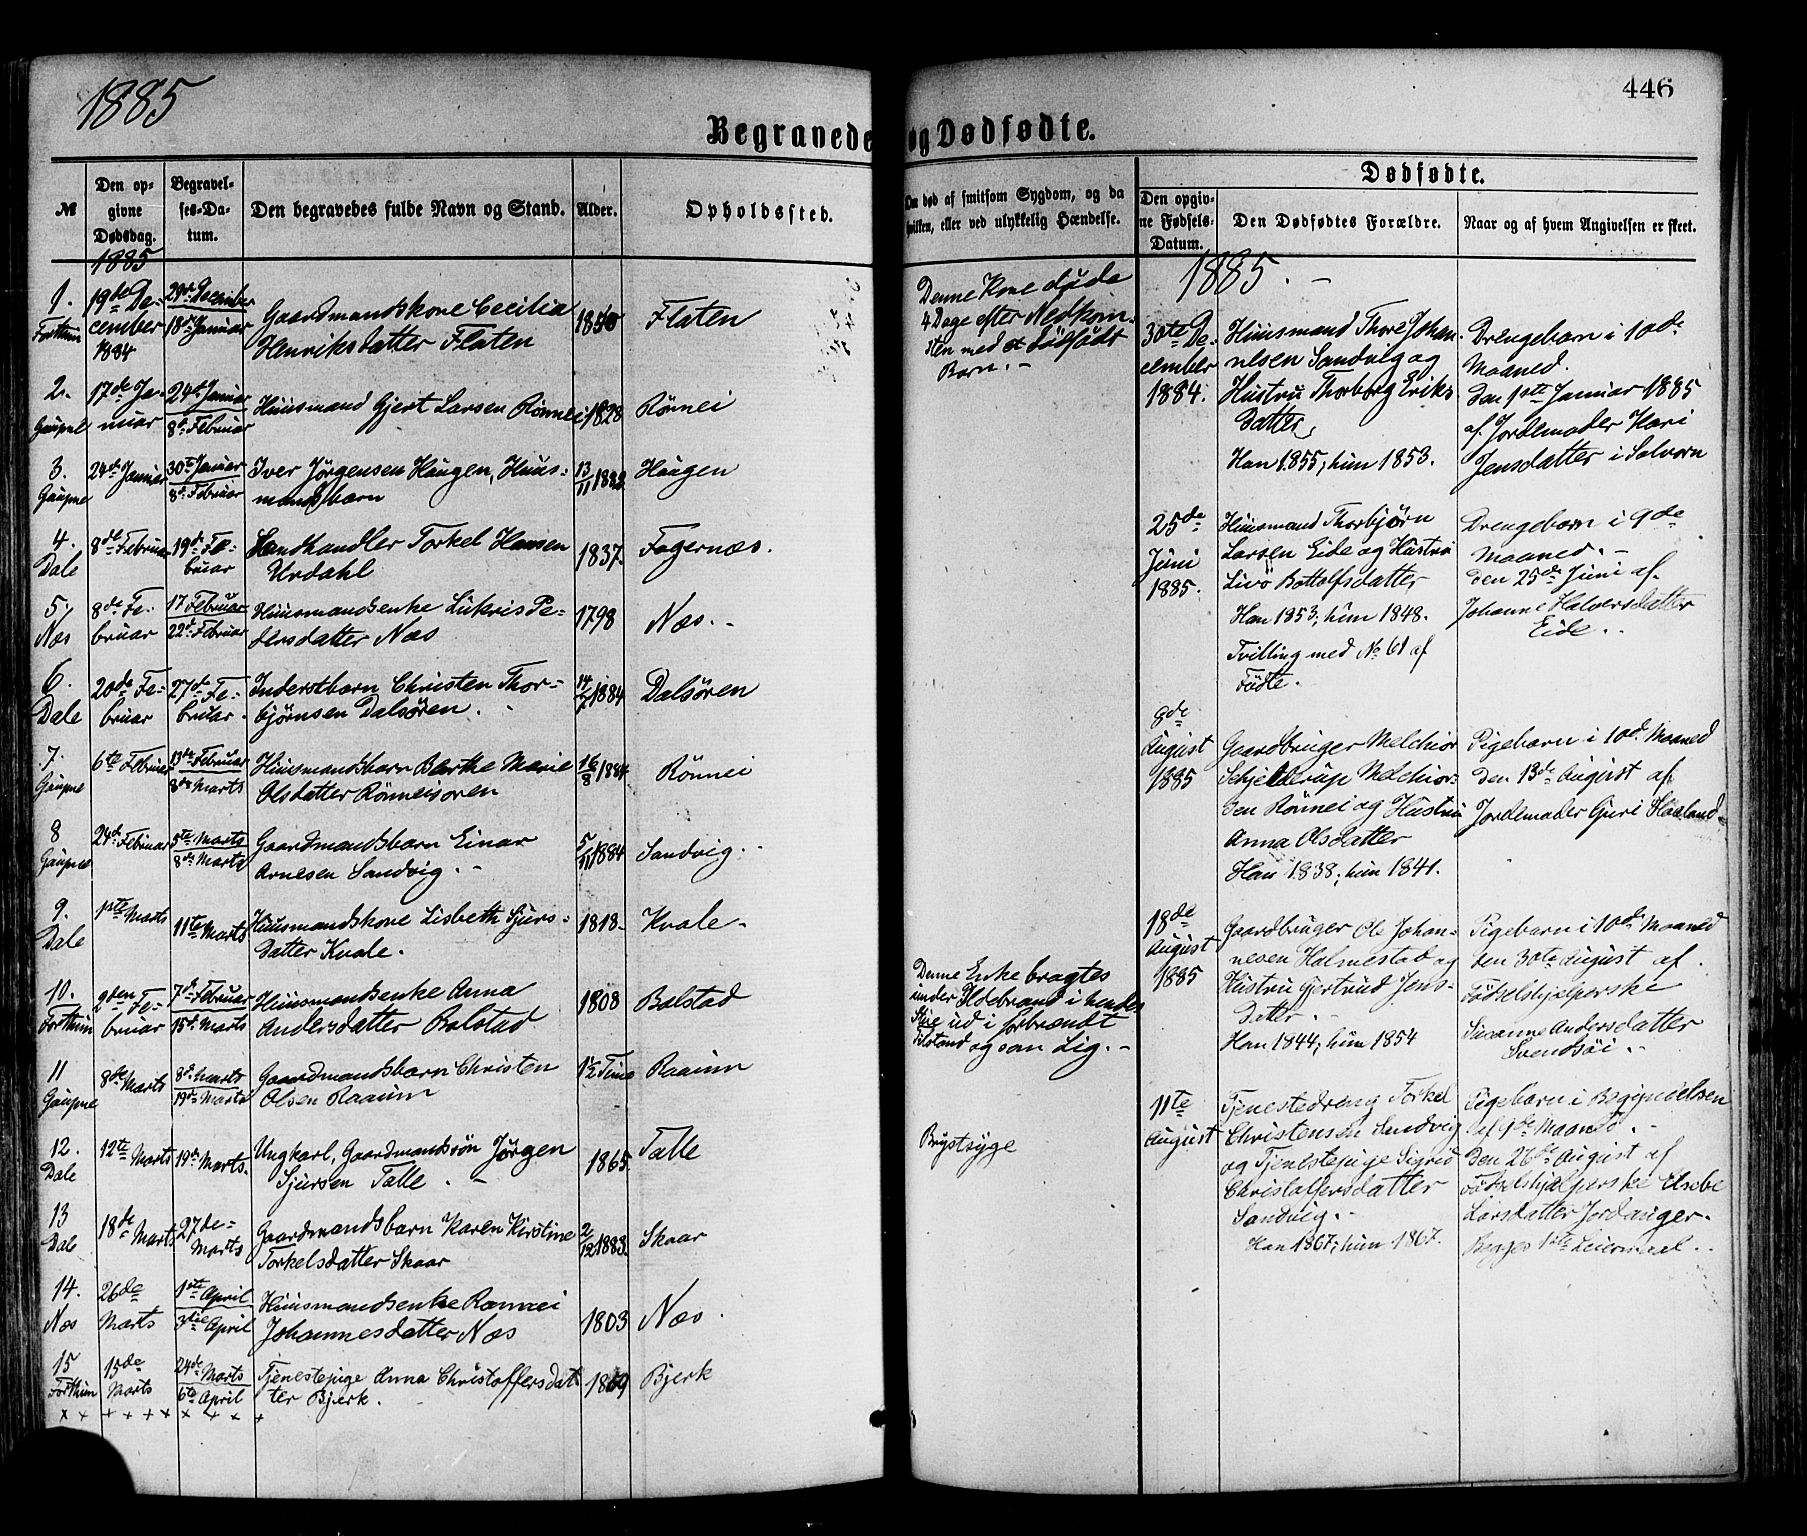 1885
446
Begravede og Dødfødte.
Dødfødte.
№
Den op-
givne
Dødsdag.
Begravel-
ses-Da-
tum.
Den begravedes fulde Navn og Stand.
Alder.
Opholdssted.
Om død af smitsom Sygdom, og da
hvilken, eller ved ulykkelig Hændelse.
Den opgiv-
ne Fødsels-
Datum.
Den Dødfødtes Forældre.
Naar og af hvem Angivelsen er skeet.
1885
1. Forthun
19de De-
cember
1884
29de December
18de Januar
Gaardmandskone Cecilia
Henriksdatter Flaten
1850
Flaten
Denne Kone døde
4 Dage efter Nedkom-
sten med et dødfødt
Barn. -
2. Gaupne
17de Ja-
nuar
24de Januar
8de Februar
Huusmand Gjert Larsen Rönnei
1828
Rönnei
3. Gaupne
24de Januar
30te Januar
8de Februar
Iver Jørgensen Haugen, Huus-
mandsbarn
13/11 1882
Haugen
4. Dale
8de Februar
19de Fe-
bruar
Landhandler Torkel Hansen
Urdahl
1837.
Fagernæs.
5. Næs
8de Fe-
bruar
17 Februar
22de Februar
Huusmandsenke Lukris Pe-
dersdatter Næs
1798
Næs. -
6. Dale
20de Fe-
bruar
27de Fe-
bruar.
Inderstbarn Christen Thor-
bjørnsen Dalsøren.
14/7 1884
Dalsøren
7. Gaupne
6te Februar
13de Februar
8de Marts
Huusmandsbarn Berthe Marie
Olsdatter Rönneisøren
16/8 1884
Rönnei
8 Gaupne
24de Februar
5te Marts
8de Marts
Gaardmandsbarn Einar
Arnesen Sandvig. -
5/11 1884
Sandvig. -
9. Dale
1ste Marts
11te Marts
Huusmandskone Lisbeth Sjurs-
datter Kvale.
1818-
Kvale-
10. Forthun
2den Fe-
bruar
7de Februar
15de Marts
Huusmandsenke Anna
Andersdatter Bolstad
1808
Bolstad
Denne Enke bragtes
under Ildebrand i hendes
Stue ud i forbrændt
Tilstand og som Lig. -
11 Gaupne
8de Marts
8de Marts
19de Marts
Gaardmandsbarn Christen
Olsen Raaum
1½ Time
Raaum
12. Dale
12te Marts
19de Marts.
Ungkarl, Gaardmandssøn Jørgen
Sjursen Talle. -
1865.
Talle
Brystsyge
13 Dale
18de Marts
27de-
Marts
Gaardmandsbarn Karen Kirstine
Torkelsdatter Skaar
2/12 1883.
Skaar
14. Næs
26de
Marts
1ste April
3die April
Huusmandsenke Rannei
Johannesdatter Næs
1803
Næs.
15 Forthun
15de
Marts
24de Marts
6te April
Tjenestepige Anna Christoffersdat-
ter Bjerk.
1869
Bjerk
x x x x x x x x x x
1885. -
30te De-
cember
1884.
Huusmand Thore Johan-
nesen Sandvig og
Hustru Thorborg Eriks-
datter,
Han 1855; hun 1853.
Drengebarn i 10de
Maaned.
Den 1ste Januar 1885
af Jordemoder Kari
Jensdatter i Solvorn
25de
Juni
1885.
Huusmand Thorbjørn
Larsen Eide og Hustru
Livø Bottolfsdatter
Han 1853; hun 1848.
Tvilling med No 61 af
Fødte.
Drengebarn i 9de
Maaned. -
Den 25de Juni af.
Johanne Halvorsdatter
Eide. -
8de
August
1885
Gaardbruger Melchior
Schjelderup Melchior-
sen Rönnei og Hustru
Anna Olsdatter
Han 1838; hun 1841.
Pigebarn i 10de Maaned
Den 13de August af
Jordemoder Guri Haaland-
18de
August
1885
Gaardbruger Ole Johan-
nesen Holmestad og
Hustru Gjertrud Jens-
datter. -
Han 1844; hun 1854
Pigebarn i 10de Maaned
den 30te August af.
Fødselshjelperske
Susanne Andersdatter
Svendsøi. -
11te
August
Tjenestedreng Torkel
Christensen Sandvig
og Tjenestepige Sigrid
Christoffersdatter
Sandvig. -
Han 1867; hun 1867.
Pigebarn i Begyndelsen
af 9de Maaned. -
Den 26de August af
Fødselshjelperske Elsebe
Larsdatter Jordanger.
Begges 1ste Leiermaal. -